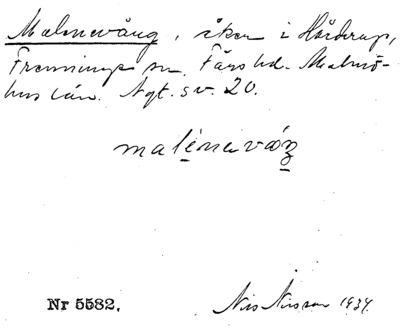 Malenevång, åker i Hårderup,
Fremninge sn. Färs hd. Malmö-
hus län. Ngt. sv. 20.
malenevåŋ
Nr 5582.
Nils Nilsson 1934.